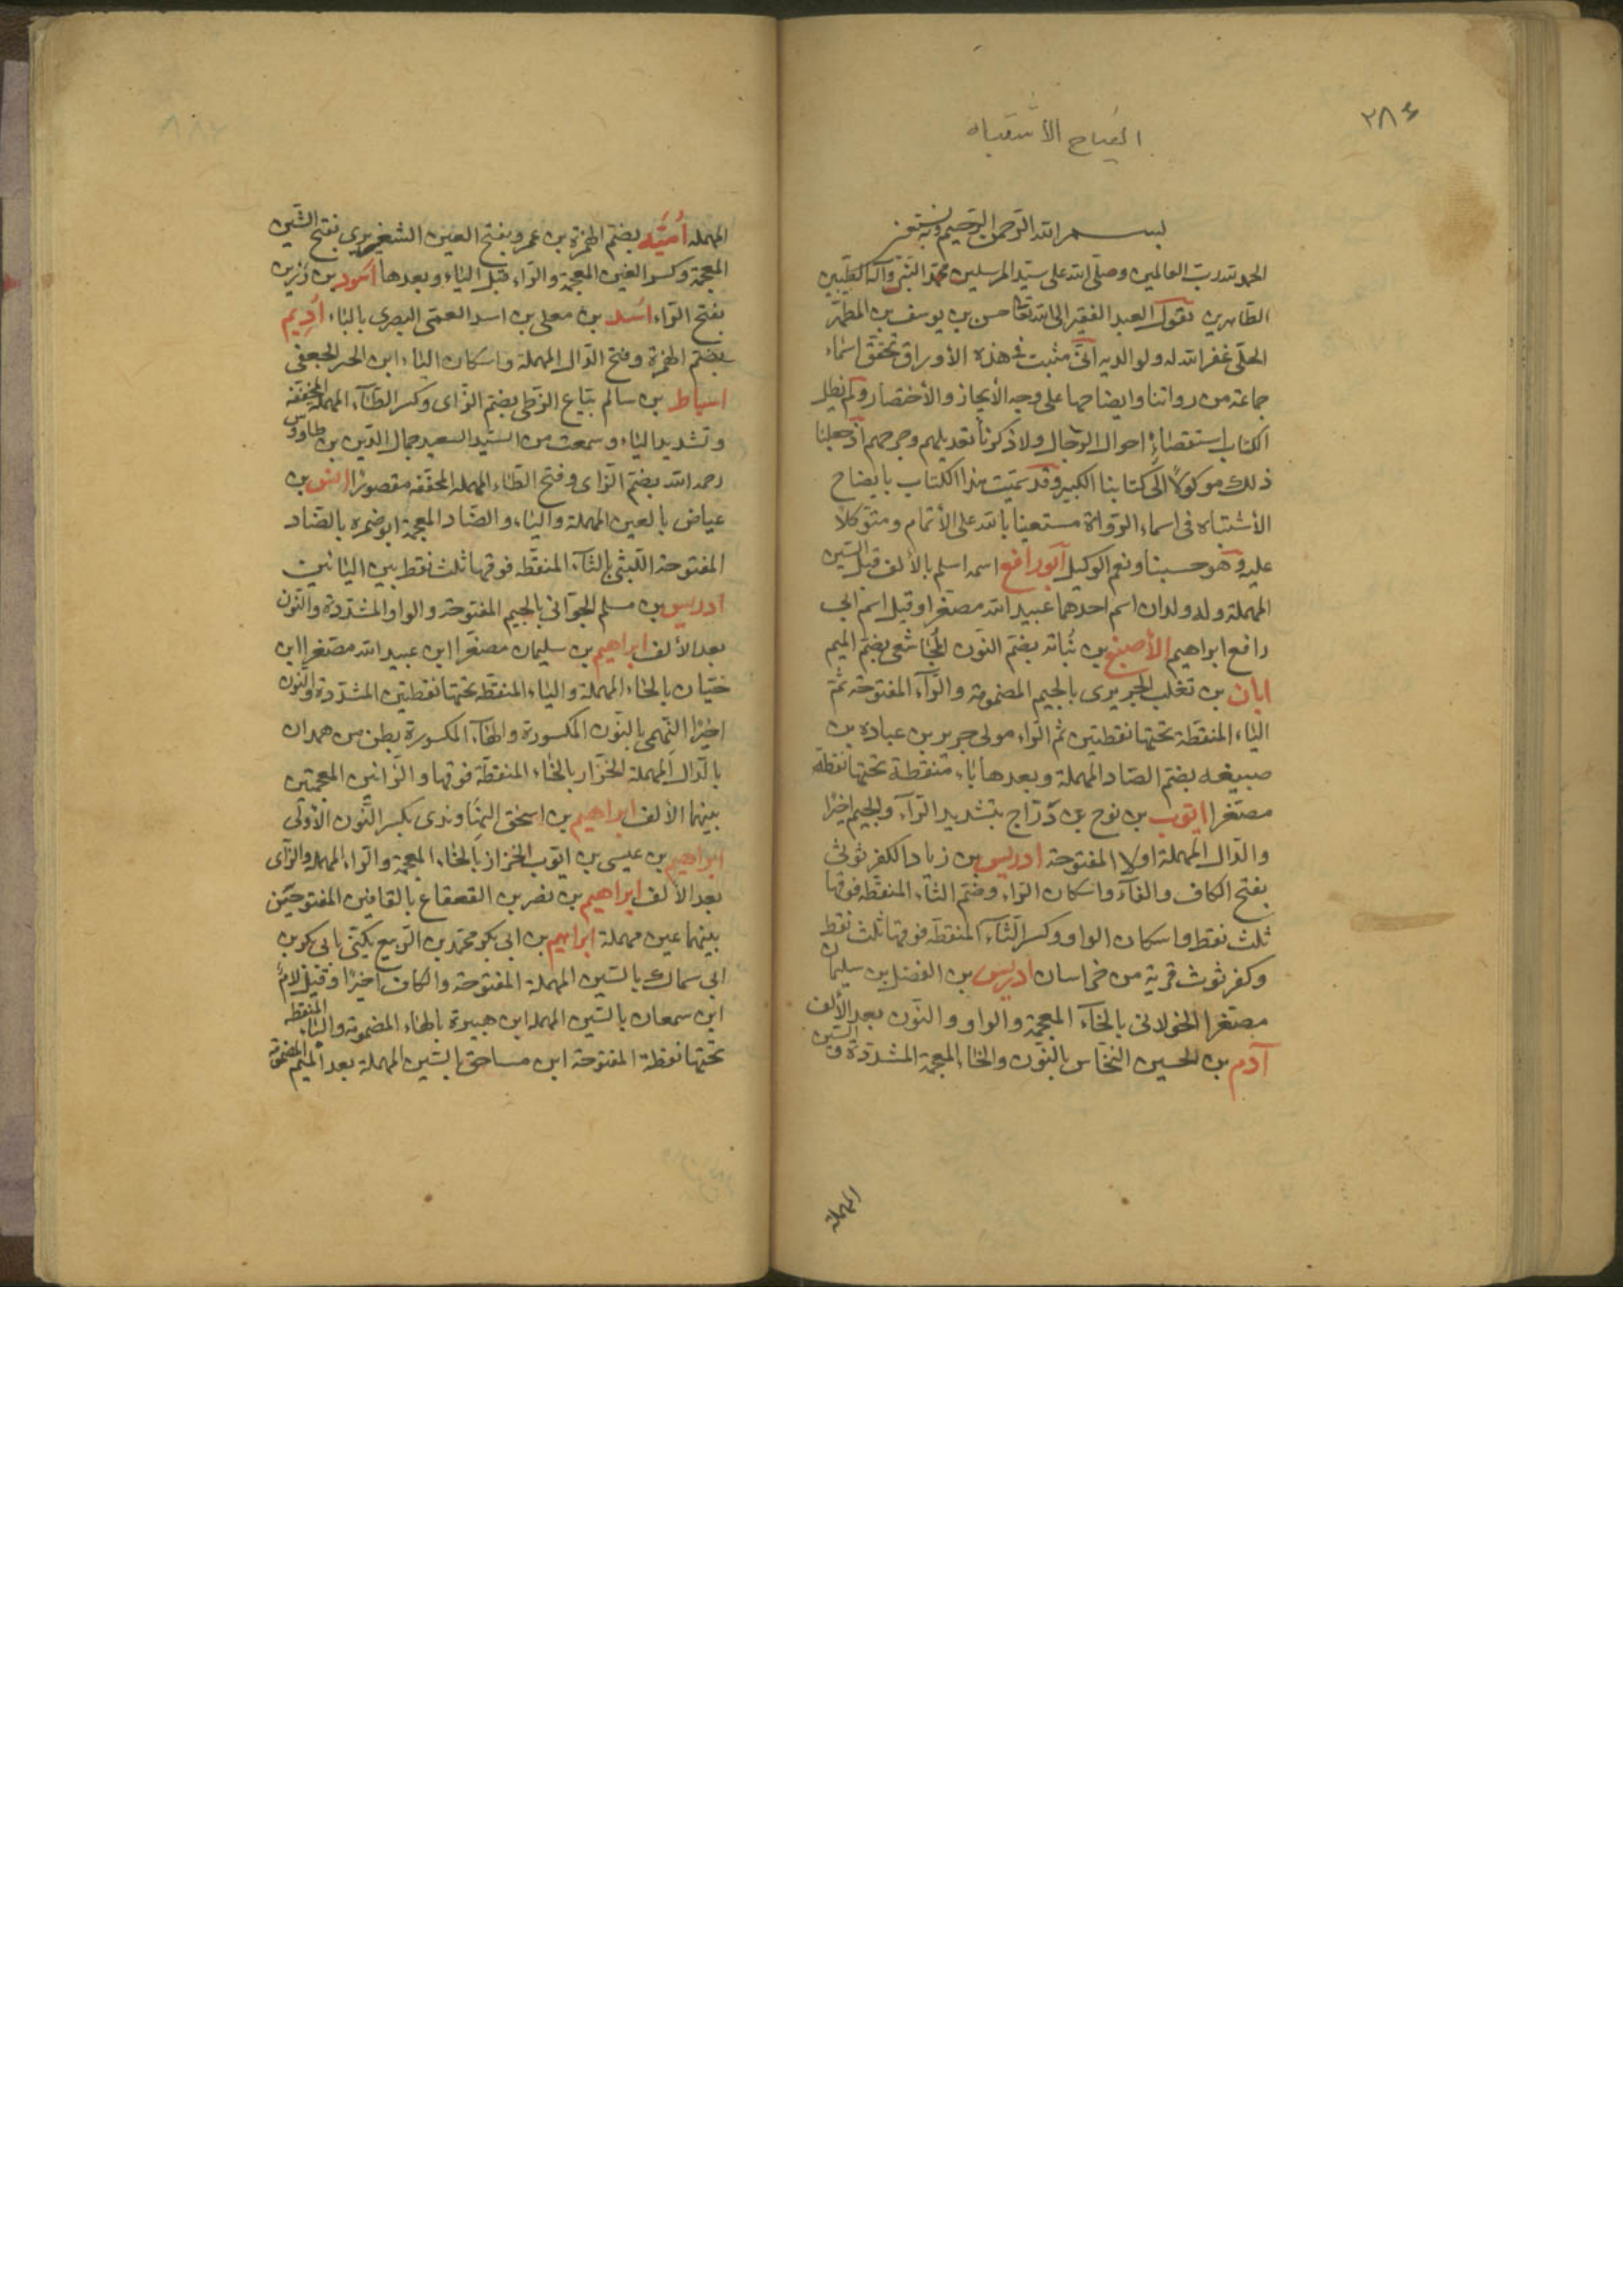 ٢٨٤
ايضاح الاشتباه
بسم الله الرحمن الرحيم وبه نستعين
الحمد لله رب العالمين وصلى الله على سيد المرسلين محمد النبي وآله الطيبين
الطاهرين يقول العبد الفقير الى الله تعالى حسن بن يوسف بن المطهر
الحلي غفر الله له ولوالديه انى مثبت في هذه الأوراق تحقق اسماء
جماعة من رواتنا وايضاحها على وجه الأيجاز والأختصار ولم نطل
الكتاب باستقصاء احوال الرجال ولا ذكرنا تعديلهم وجرحهم اذ جعلنا
ذلك موكولا الى كتابنا الكبير وقد سميت هذا الكتاب بايضاح
الأشتباه في اسماء الرواة مستعينا بالله على الأتمام ومتوكلا
عليه وهو حسبنا ونعم الوكيل ابو رافع اسمه اسلم بالألف قبل السين
المهملة وله ولدان اسم احدهما عبيد الله مصغرا وقيل اسم ابي
رافع ابراهيم الأصبغ بن نُباته بضم النون المجاشعى بضم الميم
ابان بن تغلب الجريرى بالجيم المضمومة والراء المفتوحة ثم
الياء المنقطة تحتها نقطتين ثم الراء مولى جرير بن عباده بن
صبيعه بضم الصاد المهملة وبعدها باء منقطة تحتها نقطة
مصغرا ايوب بن نوح بن دراج بتشديد الراء والجيم اخيرا
والدال المهملة اولا المفتوحة ادريس بن زياد الكفرثوثى
بفتح الكاف والفاء واسكان الراء وضم الثاء المنقطه فوقها
ثلث نقط واسكان الواو وكسر الثاء المنقطه فوقها ثلث نقط
وكفرثوث قرية من خراسان ادريس بن الفضل بن سليمان
مصغرا الخولانى بالخاء المعجمة والواو والنون بعد الألف
آدم بن الحسين النخاس بالنون والخاء المعجمة المشددة والسين
المهملة
المهمله أميّه بضم الهمزة بن عمرو بفتح العين الشغيرى بفتح الشين
المعجمة وكسر الغين المعجمة والراء قبل الياء وبعدها اسود بن رزين
بفتح الراء اسد بن معلى بن اسد العمى البصرى بالباء أديم
بضم الهمزة وفتح الدال المهملة واسكان الياء ابن الحر الجعفى
اسباط بن سالم بيّاع الزطى بضم الزاى وكسر الطاء المهملة المخففة
وتشديد الياء وسمعت من السيد السعيد جمال الدين بن طاووس
رحمه الله بضم الزاى وفتح الطاء المهملة المخففه مقصورًا انس بن
عياض بالعين المهملة والياء والضاد المعجمة ابو ضمره بالضاد
المفتوحة الليثى بالثاء المنقطه فوقها ثلث نقط بين اليائين
ادريس بن مسلم الجوّانى بالجيم المفتوحة والواو المشددة والنون
بعد الألف ابراهيم بن سليمان مصغرا ابن عبيد الله مصغرا ابن
حيّان بالحاء المهملة والياء المنقطه تحتها نقطتين المشددة والنون
اخيرًا النهمى بالنون المكسورة والهاء المكسورة بطن من همدان
بالدال المهملة الخزاز بالخاء المنقطة فوقها والزائين المعجمتين
بينهما الألف ابراهيم بن اسحق النهاوندى بكسر النون الأولى
ابراهيم بن عيسى بن ايوب الخراز بالخاء المعجمة والراء المهمله والزاى
بعد الألف ابراهيم بن نصر بن القعقاع بالقافين المفتوحتين
بينهما عين مهملة ابراهيم بن ابى بكر محمد بن الربيع يكنى بابى بكر بن
ابى سماك بالسين المهملة المفتوحة والكاف اخيرًا وقيل لام
ابن سمعان بالسين المهمله ابن هبيرة بالهاء المضمومة والباء المنقطه
تحتها نقطة المفتوحة ابن مساحق بالسين المهملة بعد الميم المضمومة